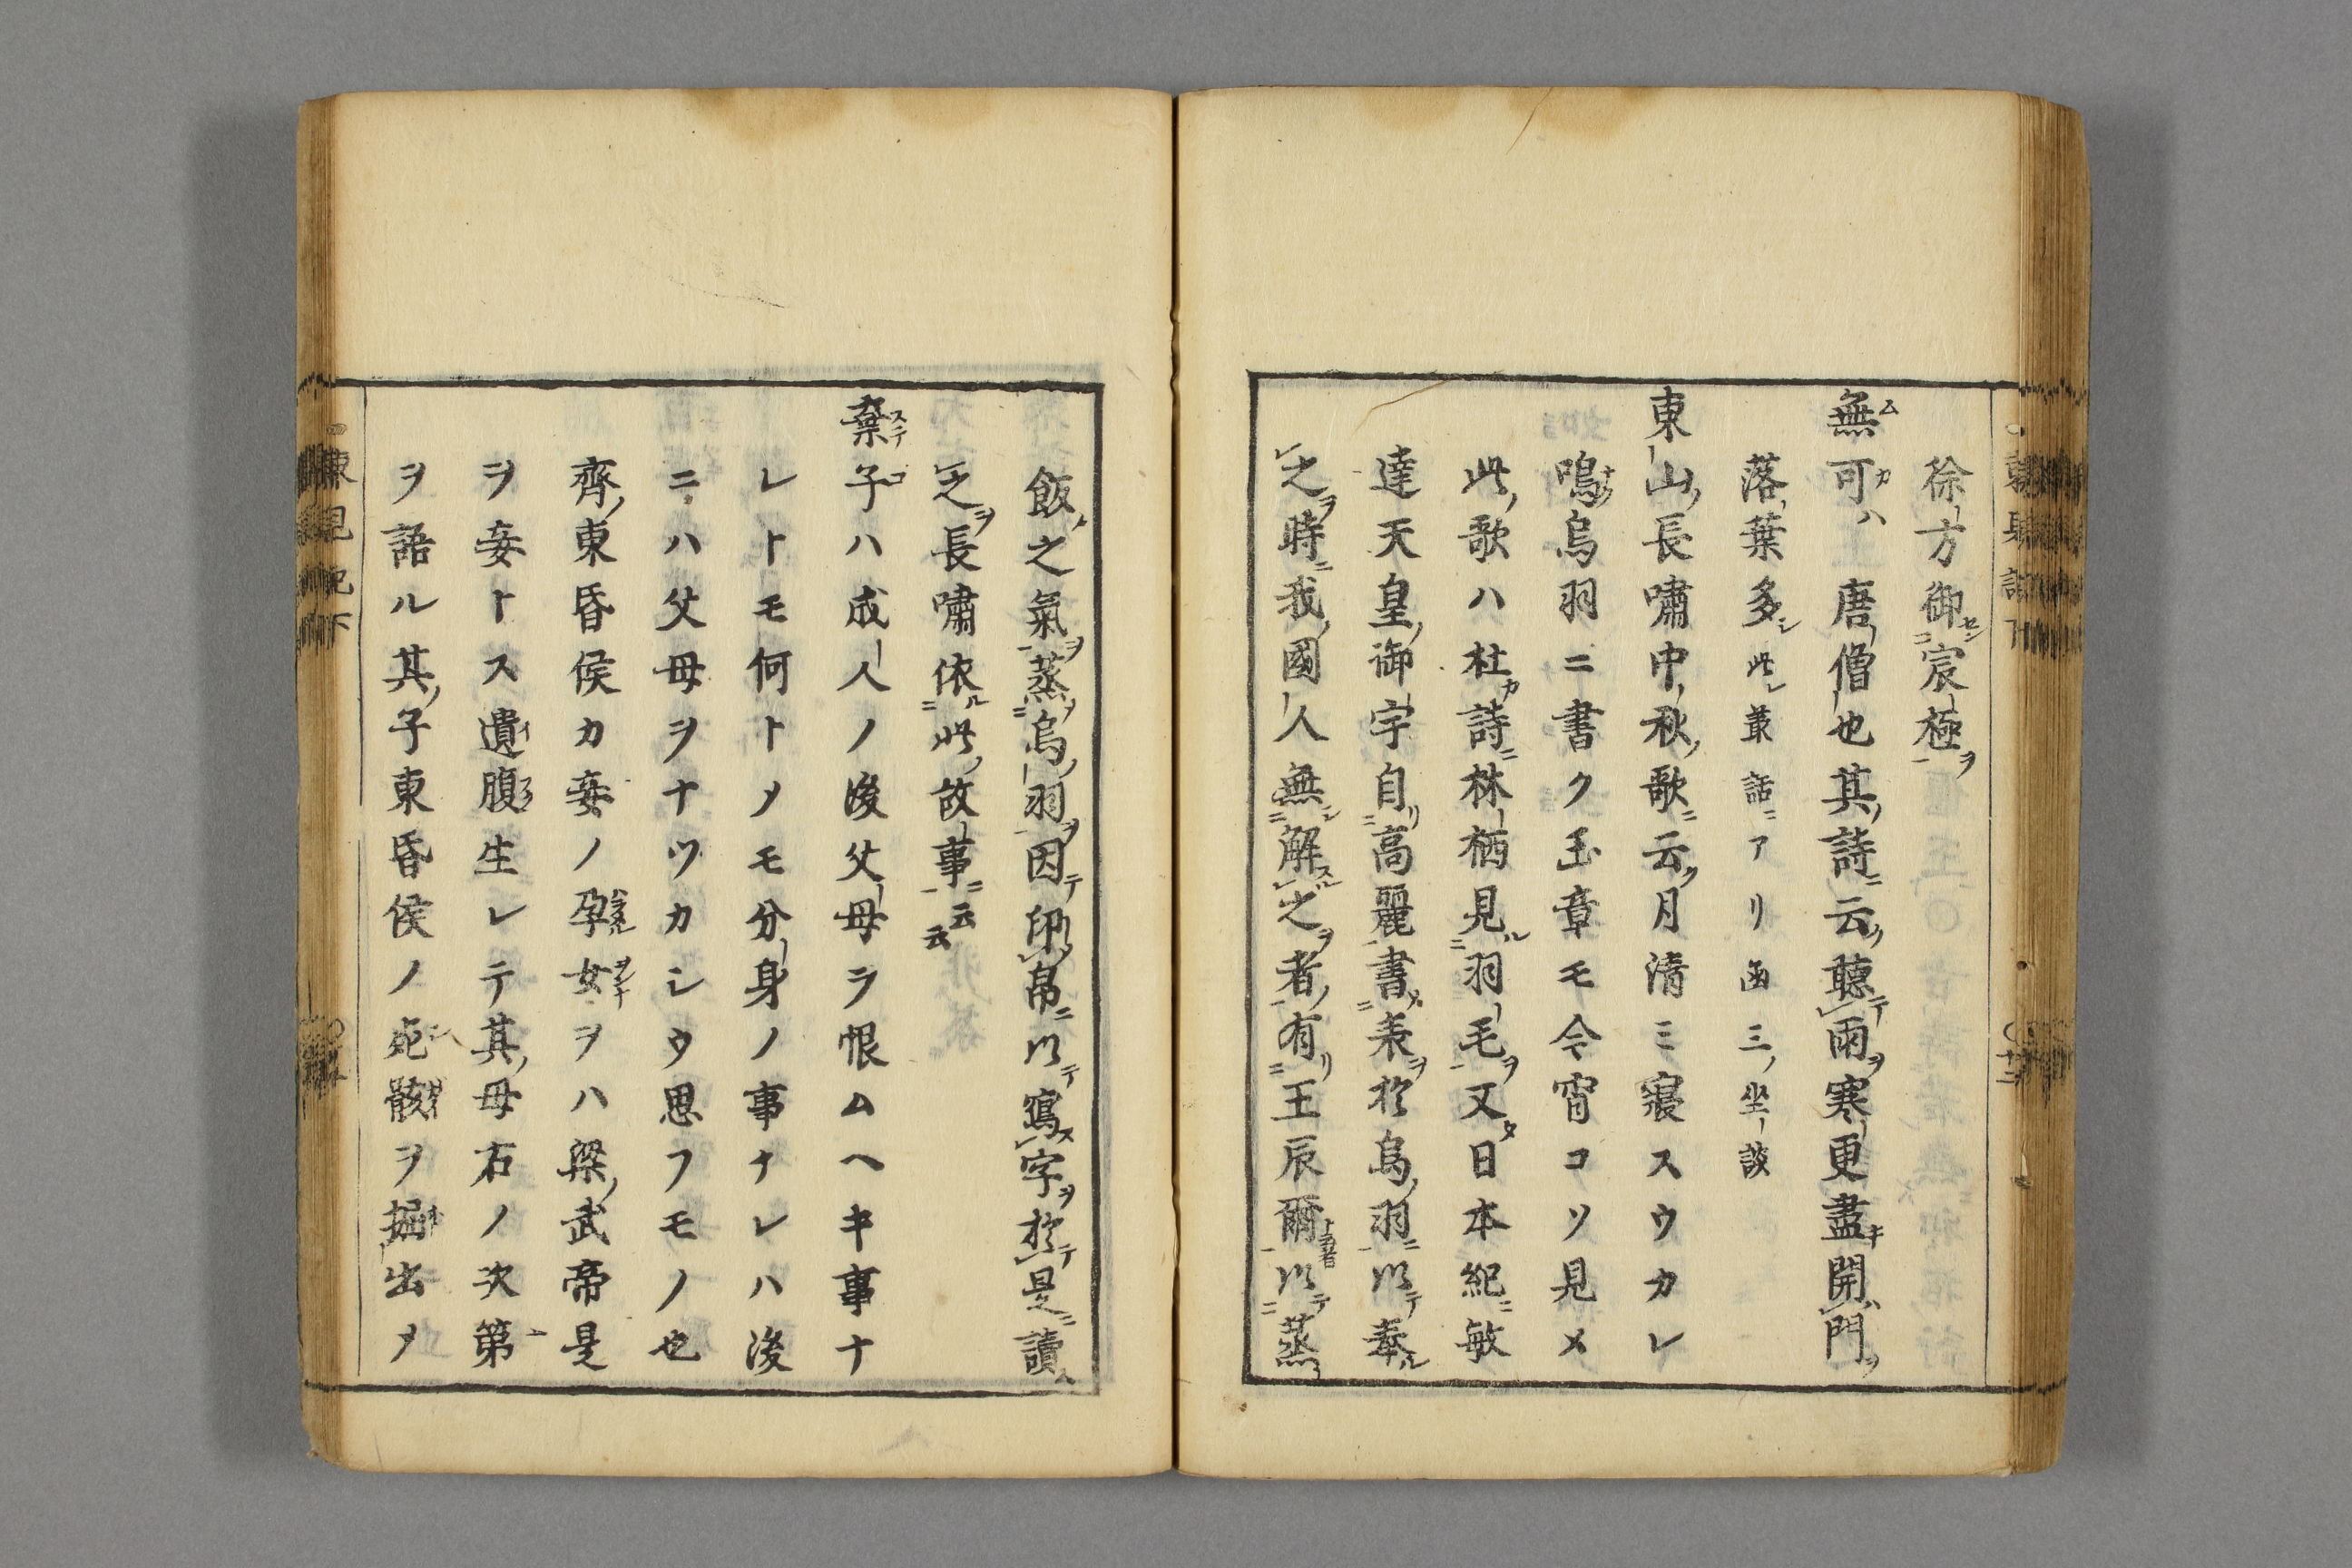 徐方御宸極
無可ハ唐僧也其詩云聴雨寒更盡開門
落葉多此最話アリ函三坐談
東山長嘯中秋歌云月清ミ寝スウカレ
鳴烏羽ニ書ク玉章モ今宵コソ見メ
此歌ハ杜詩林栖見羽毛又日本紀敏
達天皇御宇自高麗書表於烏羽以奉
之時我國人無解之者有王辰爾以蒸
飯之氣蒸烏羽因印帛以寫字於是讀
之長嘯依此故事云云
棄子ハ成人ノ後父母ヲ恨ムヘキ事ナ
レトモ何トノモ分身ノ事ナレハ後
ニハ父母ヲナツカシウ思フモノ也
齊東昏侯カ妾ノ孕女ヲハ梁武帝是
ヲ妾トス遺腹生レテ其母右ノ次第
ヲ語ル其子東昏侯ノ死骸ヲ掘出メ